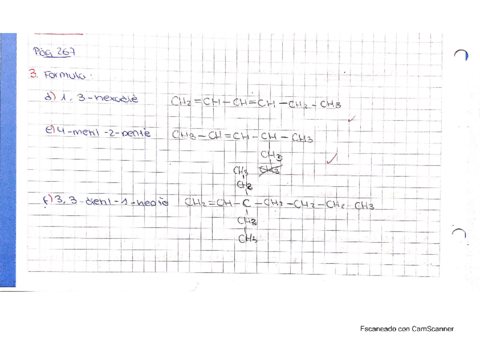 Pág 267
3. Formula:
d) 1, 3-hexadiè CH2=CH-CH=CH-CH2-CH3
e) 4-metil-2-pentè CH3-CH=CH-CH-CH3
CH3
CH3 CH3
CH2
f) 3, 3-dietil-1-heptè CH2=CH-C-CH2-CH2-CH2-CH3
CH2
CH3
Escaneado con CamScanner